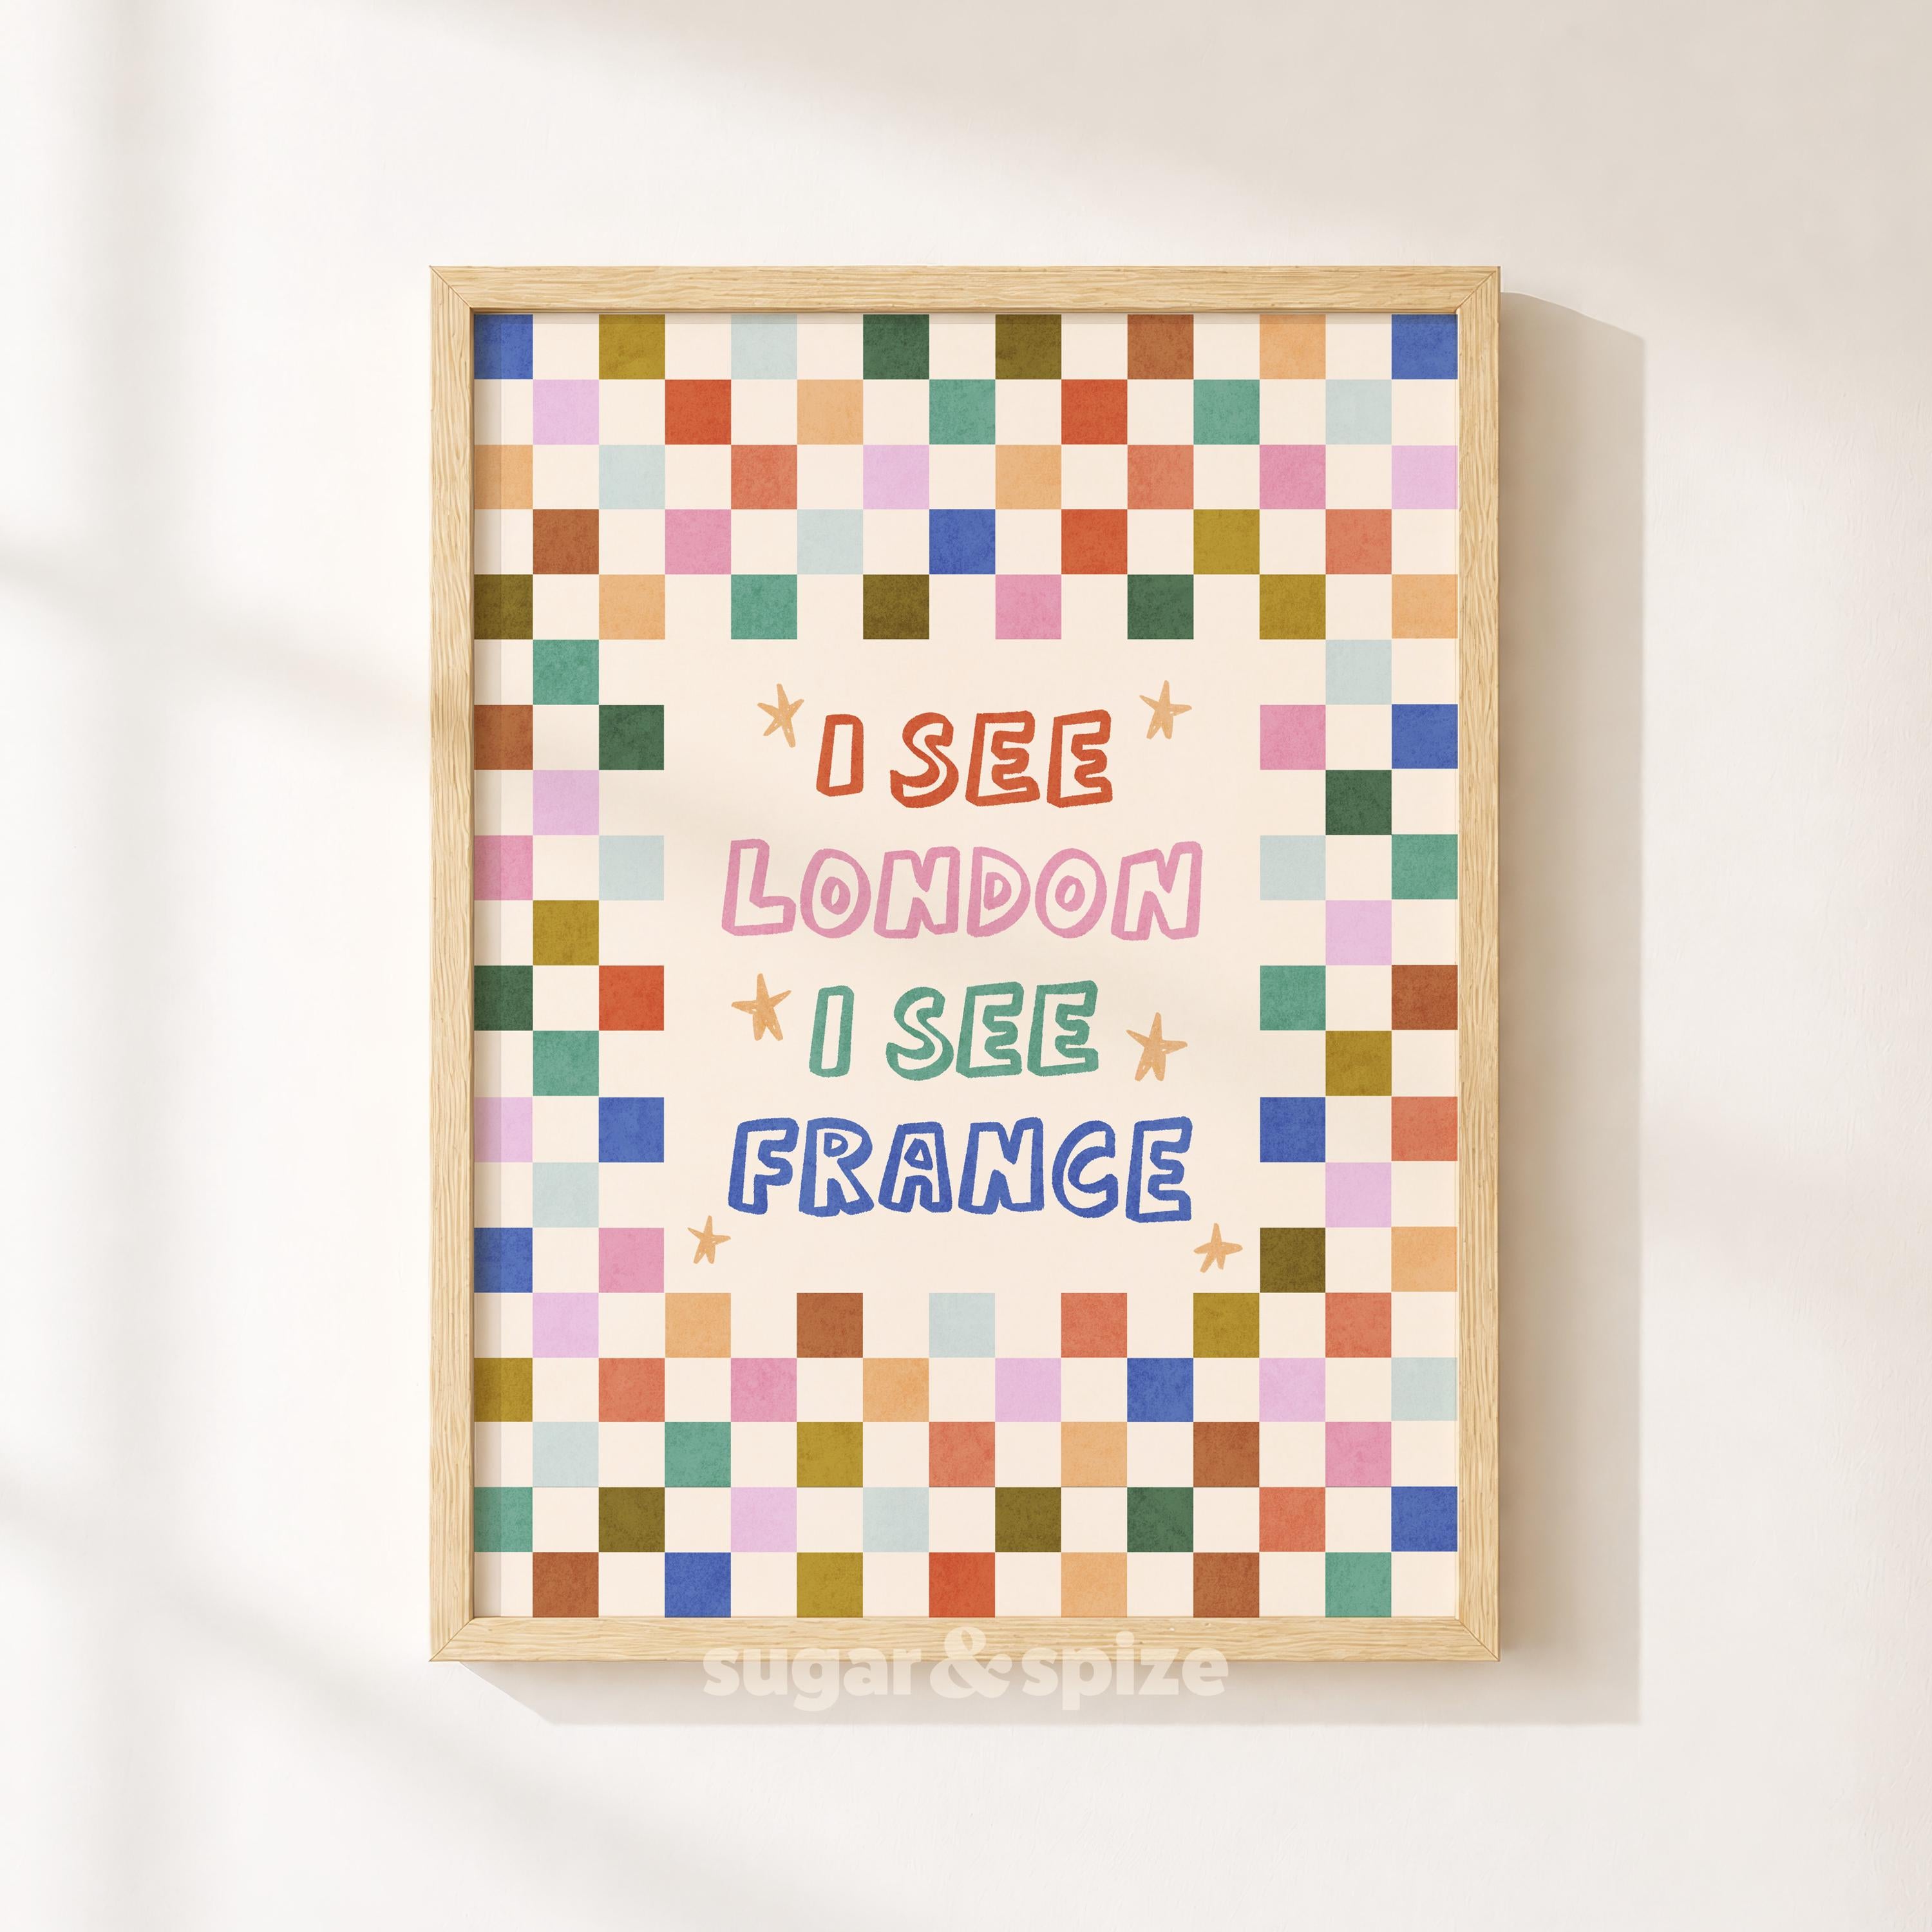 I SEE
LONDON
I SEE
FRANCE
sugar&spize